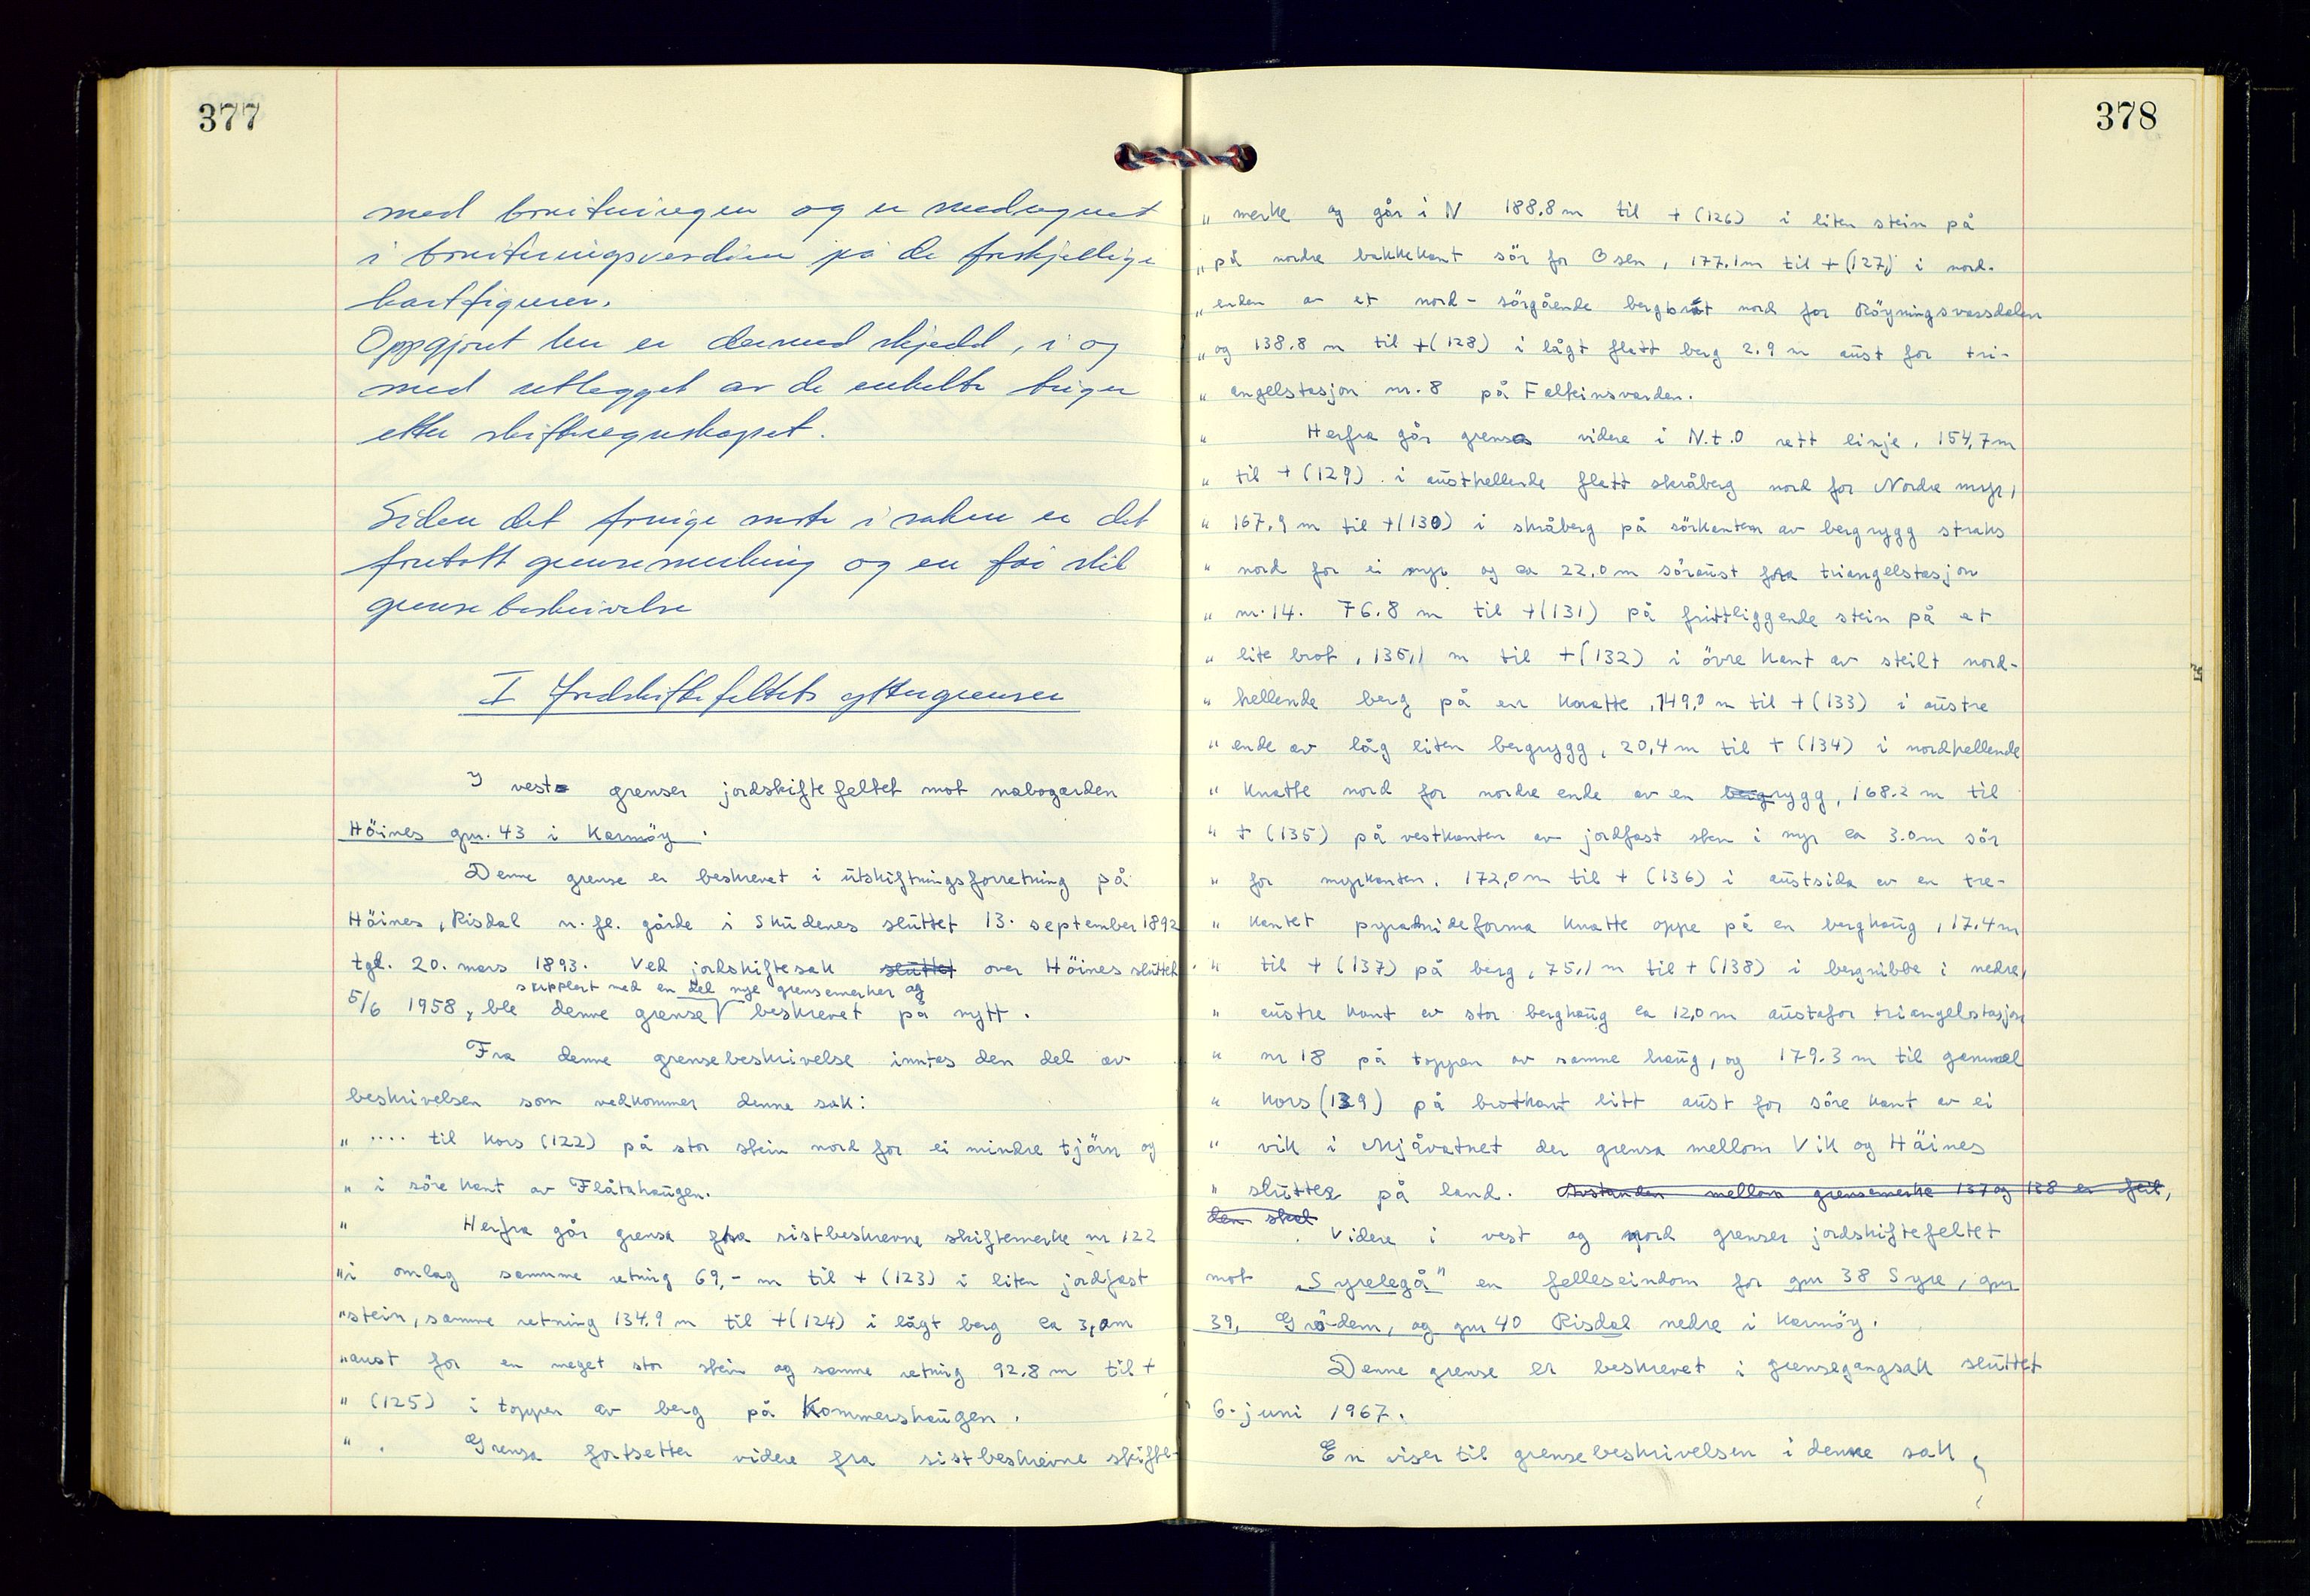 377
med boniteringen og er medregnet
i boniteringsverdien på de forskjellige
kartfigurer.
Oppgjøret her er dermed skjedd, i og
med utlegget av de enkelte teiger
etter skifteregnskapet.
Siden det forrige møte i saken er det
foretatt grensemerking og en får slik
grensebeskrivelse
I Jordskiftefeltets yttergrenser
I vest grenser jordskiftefeltet mot nabogarden
Höines gnr. 43 i Karmöy.
Denne grense er beskrevet i utskiftningsforretning på
Höines, Risdal m. fl. gårde i Skudenes sluttet 13. september 1892
tgl. 20. mars 1893. Ved jordskiftesak sluttet over Höines sluttet
supplert med en del nye grensemerker og
5/6 1958, ble denne grense √ beskrevet på nytt.
Fra denne grensebeskrivelse inntas den del av
beskrivelsen som vedkommer denne sak:
" .... til kors (122) på stor stein nord for ei mindre tjörn og
" i söre kant av Flåtahaugen.
" Herfra går grensa fra sistbeskrevne skiftemerke nr 122
" i omlag samme retning 69,- m til + (123) i liten jordfast
" stein, samme retning 134.9 m til +(124) i lågt berg ca 3,0m
" aust for en meget stor stein og samme retning 92.8 m til +
" (125) i toppen av berg på Kommershaugen.
" . Grensa fortsetter videre fra sistbeskrevne skifte-
378
" merke og går i N 188.8 m til + (126) i liten stein på
" på nordre bakkekant sör for Osen, 177.1m til + (127) i nord-
" enden av et nord-sörgående bergbrot nord for Röyningsvassdalen
" og 138.8 m til +(128) i lågt flatt berg 2.9 m aust for tri-
" angelstasjon nr. 8 på Falkeinsvarden.
" Herfra går grensa videre i N.t.O rett linje, 154,7m
" til + (129) i austhellende flatt skråberg nord for Nordre myr,
" 167.9 m til +(130) i skråberg på sörkanten av bergrygg straks
" nord for ei myr og ca 22.0 m söraust fra triangelstasjon
" nr. 14. 76.8 m til +(131) på frittliggende stein på et
" lite brot, 135,1 m til +(132) i övre kant av steilt nord-
" hellende berg på en knatte, 149,0 m til + (133) i austre
" ende av låg liten bergrygg, 20,4 m til + (134) i nordhellende
" knatte nord for nordre ende av en bergrygg, 168.2 m til
" + (135) på vestkanten av jordfast sten i myr ca 3.0m sör
" for myrkanten. 172,0 m til + (136) i austsida av en tre-
" kantet pyramideforma knatte oppe på en berghaug, 17.4m
" til + (137) på berg, 75,1 m til + (138) i bergnibbe i nedre,
" austre kant av stor berghaug ca 12,0 m austafor triangelstasjon
" nr 18 på toppen av samme haug, og 179.3 m til gammel
" kors (139) på brotkant litt aust for söre kant av ei
" vik i Mjåvatnet der grensa mellom Vik og Häines
" slutter på land. Avstanden mellom grensemerke 137 og 138 er feil,
den skal
Videre i vest og nord grenser jordskiftefeltet
mot "Syrelegå" en felleseindom for gnr 38 Syre, gnr
39, Grödem, og gnr 40 Risdal nedre i Karmöy.
Denne grense er beskrevet i grensegangsak sluttet
6. juni 1967.
En viser til grensebeskrivelsen i denne sak